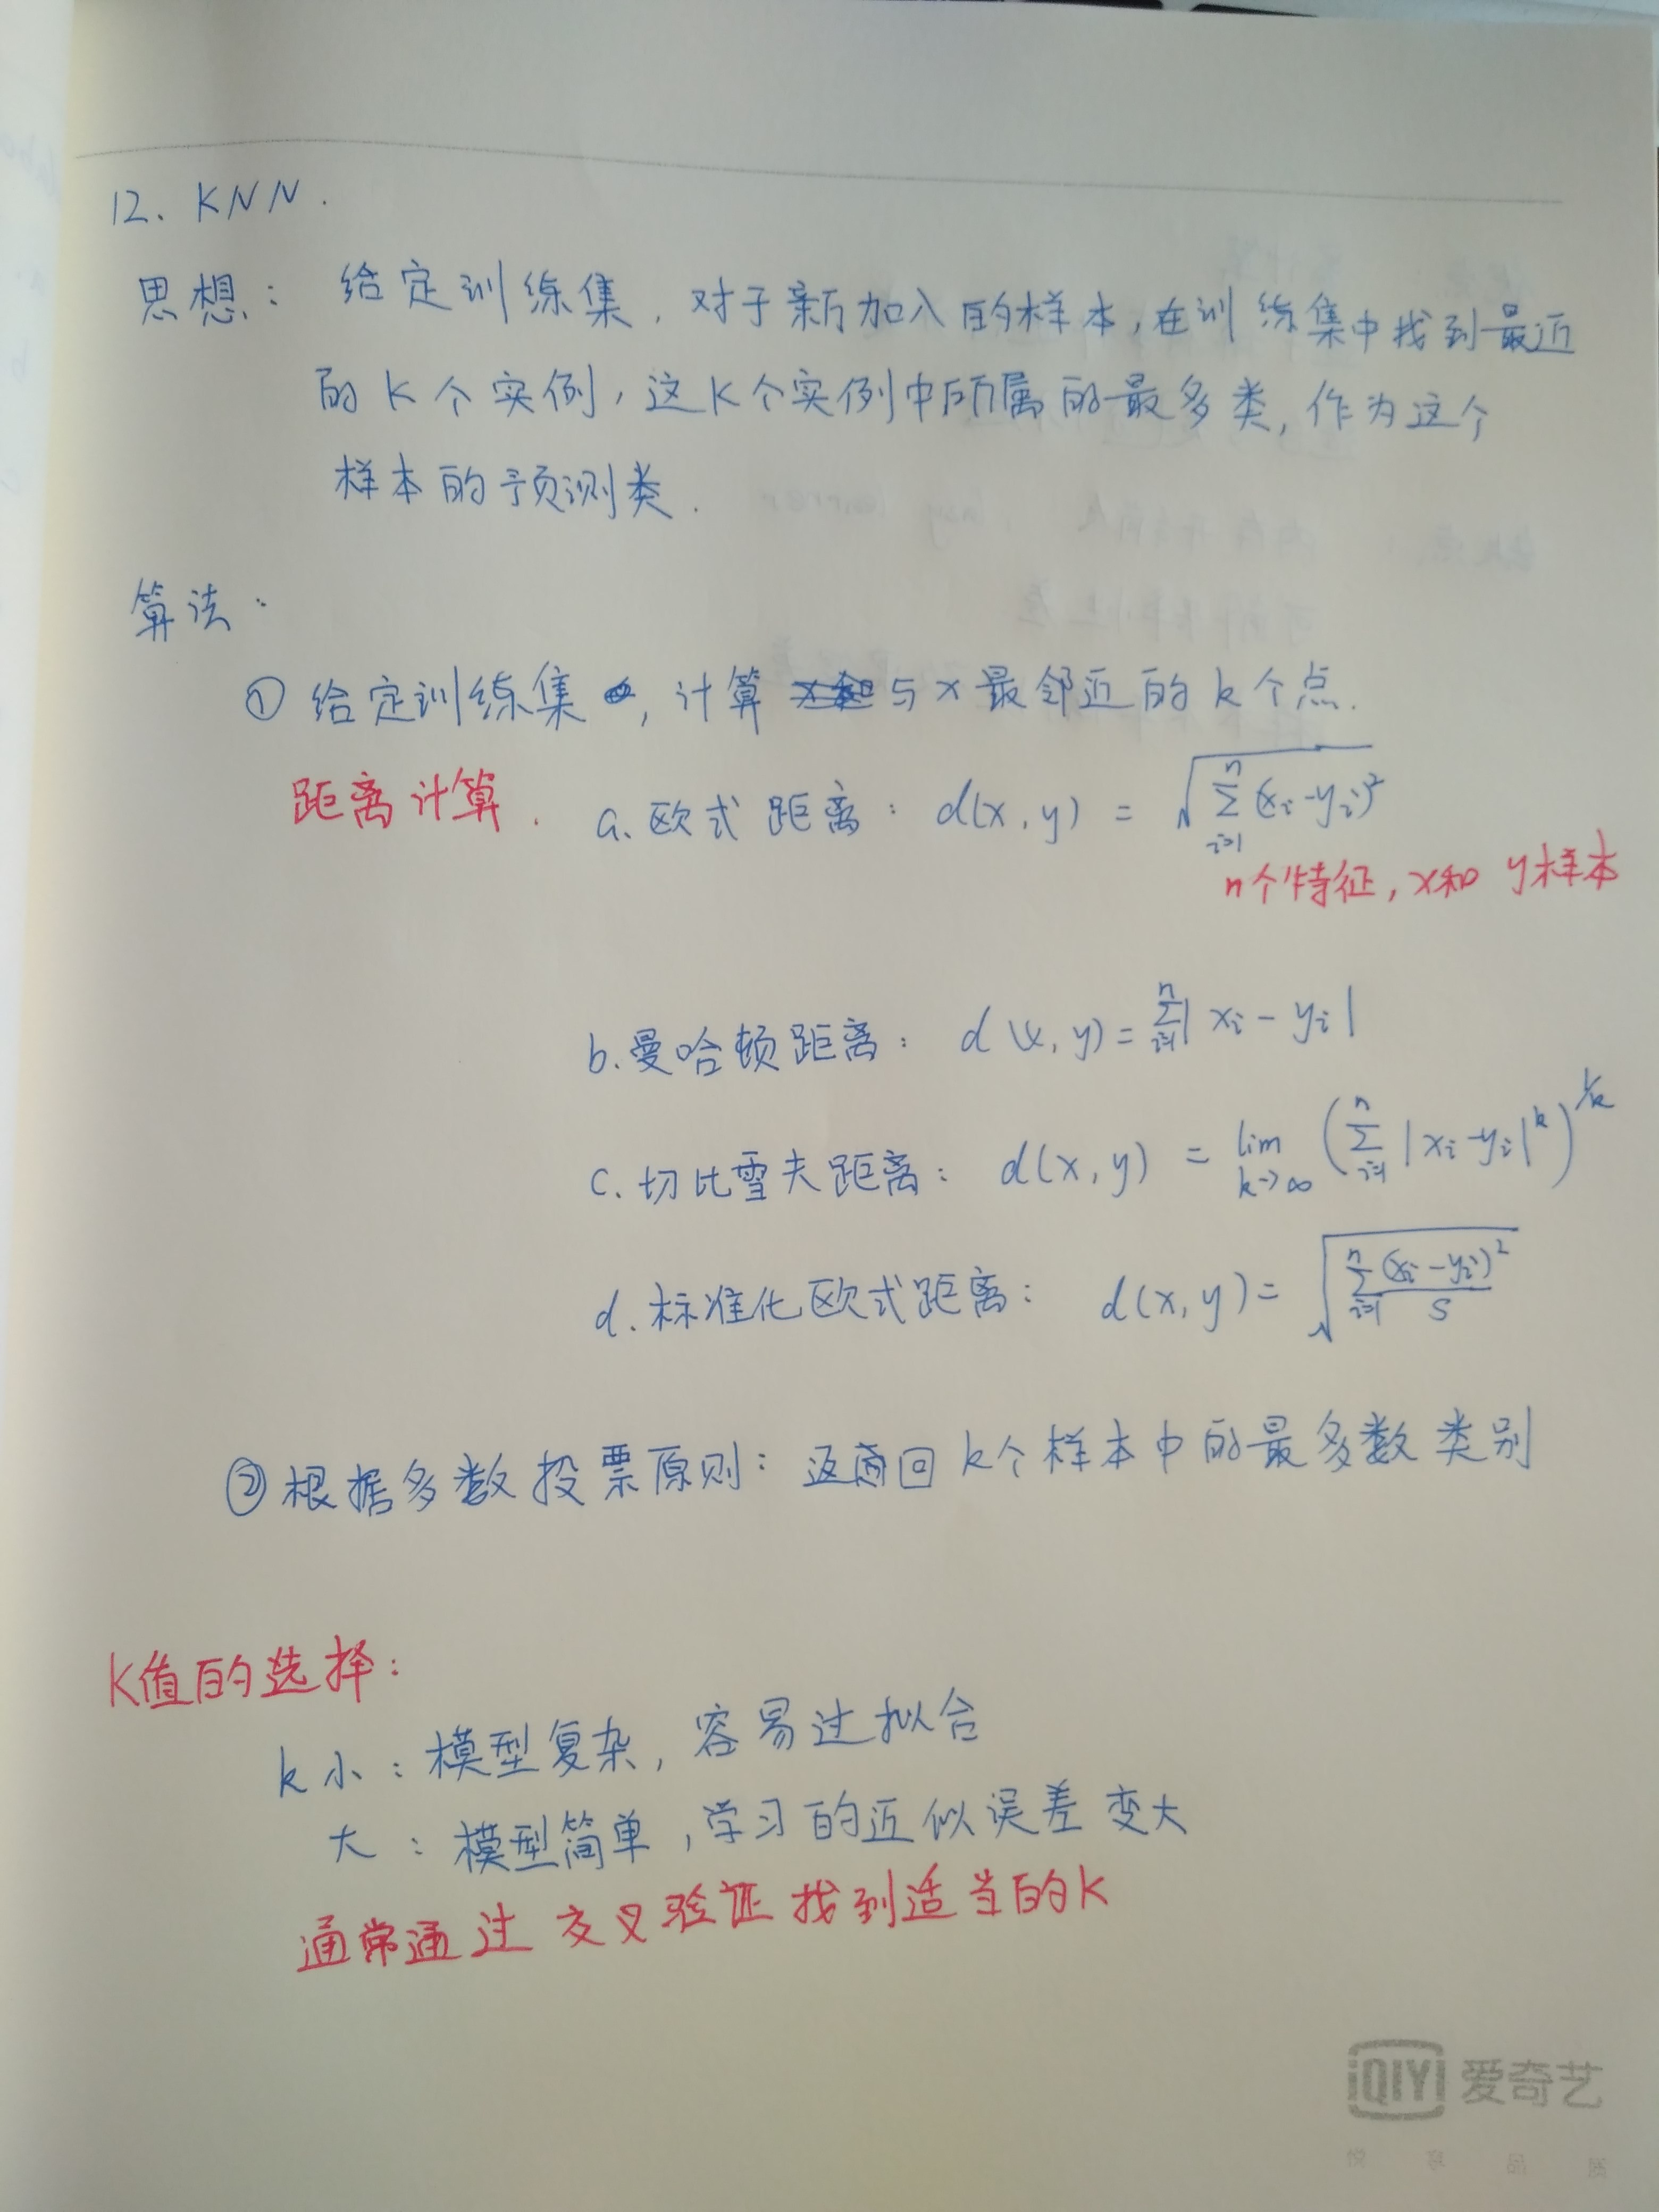 12、KNN.
思想：给定训练集，对于新加入的样本，在训练集中找到最近
的K个实例，这K个实例中所属的最多类，作为这个
样本的预测类.
算法：
① 给定训练集，计算与x最邻近的k个点.
距离计算. a.欧式距离：d(x,y) = √(∑_{i=1}^{n}(x_i-y_i)²)
n个特征，x和y样本
b.曼哈顿距离：d(x,y)=∑_{i=1}^{n}|x_i-y_i|
c.切比雪夫距离：d(x,y) = lim_{k→∞}(∑_{i=1}^{n}|x_i-y_i|^k)^{1/k}
d.标准化欧式距离：d(x,y)=√(∑_{i=1}^{n}(x_i-y_i)²/S)
② 根据多数投票原则：返回k个样本中的最多数类别
K值的选择：
k小：模型复杂，容易过拟合
大：模型简单，学习的近似误差变大
通常通过交叉验证找到适当的K
iQIYI 爱奇艺
悦 享 品 质